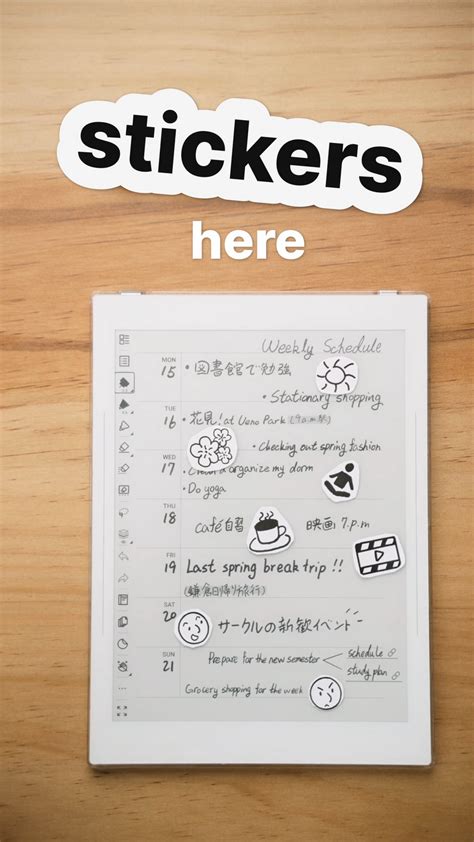 stickers
here
Weekly Schedule
MON
15
・図書館で勉強
・Stationary shopping
TUE
16
・花見! at Ueno Park
・Checking out spring fashion
WED
17
organize my dorm
・Do yoga
THU
18
café自習
映画 7p.m
FRI
19
Last spring break trip !!
(鎌倉日帰り旅行)
SAT
20
サークルの新歓イベント
SUN
21
Prepare for the new semester
schedule
study plan
Grocery shopping for the week